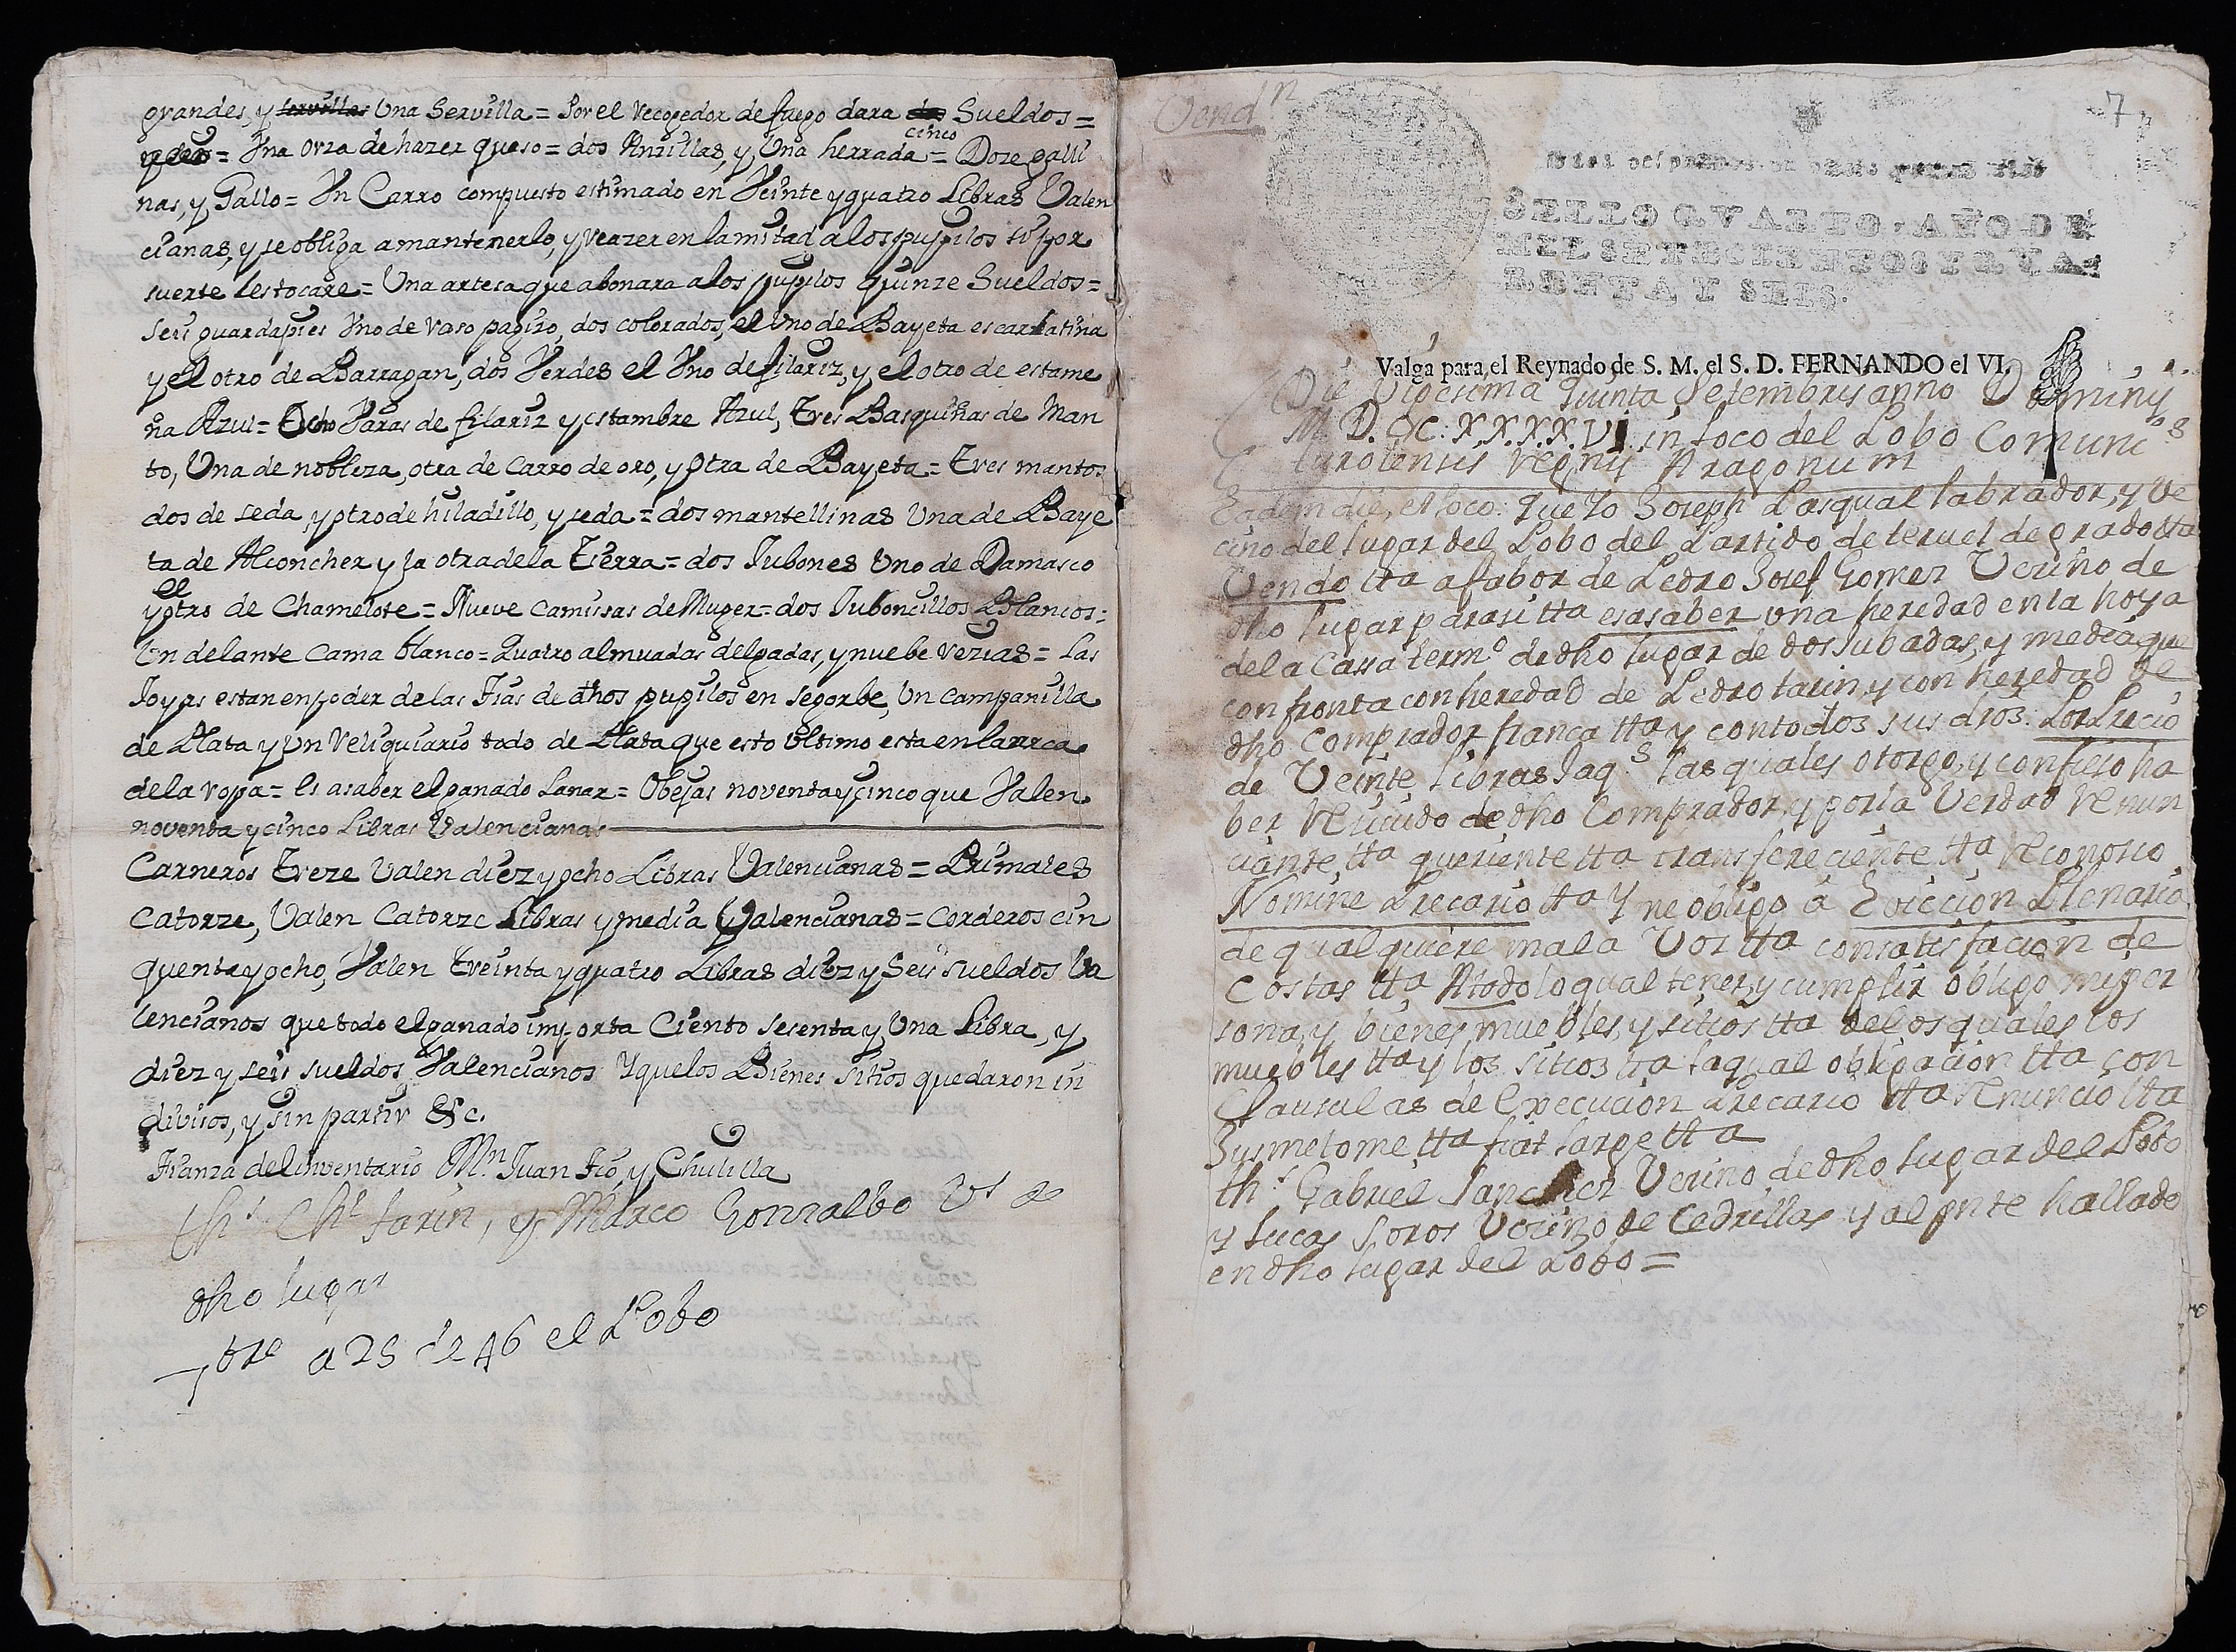 grandes, y servillas Una Servilla = Por el recogedor de fuego dara dos Sueldos =
cinco
= Una orza de hazer queso = dos Anzillas, y Una herrada = Doze galli
nas, y Gallo = Un Carro compuesto estimado en Veinte y quatro Libras Valen
cianas, y se obliga a mantenerlo, y reazer en la mitad a los pupilos si por
suerte les tocare = Una artesa que abonara a los pupilos quinze Sueldos =
Seis guardapies Uno de raso pagizo, dos colorados, el Uno de Bayeta escarlatina
y el otro de Barragan, dos Verdes el Uno de filariz, y el otro de estame
ña Azul = Ocho Varas de filariz y estambre Azul, Tres Basquiñas de Man
to, Una de nobleza, otra de Carro de oro, y otra de Bayeta = Tres mantos
dos de seda, y otro de hiladillo, y seda = dos mantellinas Una de Baye
ta de Alconcher y la otra de la Tierra = dos Jubones Uno de Damasco
el
y otro de Chamelote = Nueve Camissas de Muger = dos Juboncillos Blancos =
Un delante Cama blanco = Quatro almuadas delgadas, y nuebe rezias = Las
Joyas estan en poder de las Tias de dhos pupilos en Segorbe, Un Campanilla
de Plata y Un Reliquiario todo de Plata que esto ultimo esta en la arca
de la ropa = Es a saber el ganado Lanar = Obejas noventa y cinco que Valen
noventa y cinco Libras Valencianas
Carneros Treze Valen diez y ocho Libras Valencianas = Primales
Catorze, Valen Catorze Libras y media Valencianas = Corderos cin
quenta y ocho, Valen Treinta y quatro Libras diez y Seis sueldos Va
lencianos que todo el ganado importa Ciento sesenta y Una Libra, y
diez y seis sueldos Valencianos Y que los Bienes sitios quedaron in
divisos, y sin partir &c.
Fianza del inventario Mn. Juan Tio, y Chulilla
ths Chl tarin, y Marco Gonzalbo Vs de
dho lugar
7bre a 25 de 46 el Pobo
Vendn
7
SELLO QVARTO, AÑO DE
MIL SETECIENTOS Y QVA-
RENTA Y SEIS.
Valga para el Reynado de S. M. el S. D. FERNANDO el VI.
Die Vigesima quinta Setembris anno Dominij
M.D.CC.XXXX.VI. in loco del Pobo Comunis
turolensis regnij Aragonum
Eadem die, et loco: que Yo Joseph Pasqual labrador, y Ve
cino del lugar del Pobo del Partido de teruel de grado tta
Vendo tta a fabor de Pedro Josef Gomez Vecino de
dho lugar para si tta es a saber una heredad en la hoya
de la Cassa termo de dho lugar de dos Jubadas, y media que
confronta con heredad de Pedro tarin y con heredad de
dho Comprador franca tta y con todos sus dros: Por Precio
de Veinte libras Jaqs las quales otorgo, y confieso ha
ber recivido de dho Comprador, y por la Verdad renun
ciante tta queriente tta transfereciente tta reconosco
Nomine Precario tta Y me obligo a Eviccion Plenaria
de qualquiere mala Voz tta con satisfacion de
Costas tta A todo lo qual tener, y cumplir obligo mi per
sona, y bienes muebles, y sitios tta de los quales los
muebles tta y los sitios tta la qual obligacion tta con
Clausulas de Execucion Precario tta renuncio tta
Jusmetome tta fiat large tta
ths Gabriel Sanchez Vecino de dho lugar del Pobo
y Lucas Soros Vecino de Cedrillas y al pnte hallado
en dho lugar del Pobo =